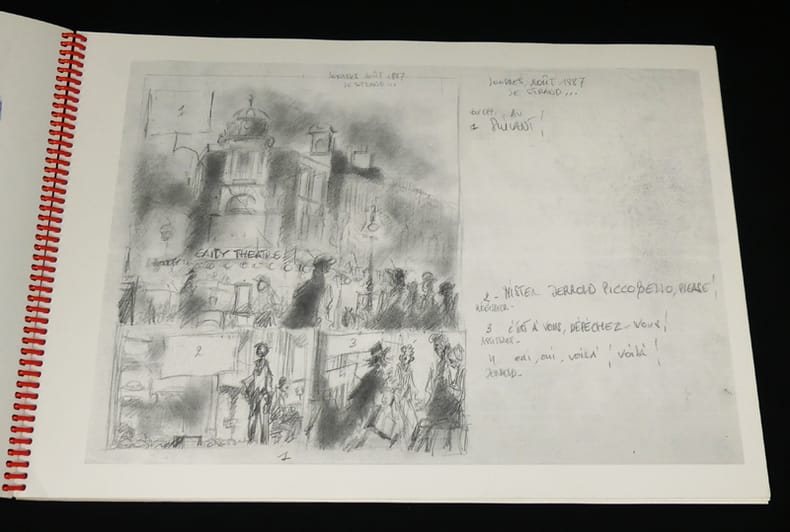 LONDRES AOÛT 1887
LE STRAND...
1
GAITY THEATRE
2
3
1
LONDRES, AOÛT 1887
LE STRAND...
AU
1 SUIVANT!
2 - MISTER JERROLD PICCOBELLO, PLEASE!
3 C'EST À VOUS, DÉPÊCHEZ-VOUS!
4 OUI, OUI, VOILÀ! VOILÀ!
JERROLD -